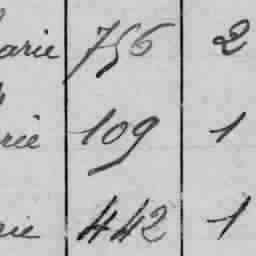 arie 756 2
rie 109 1
rie 442 1